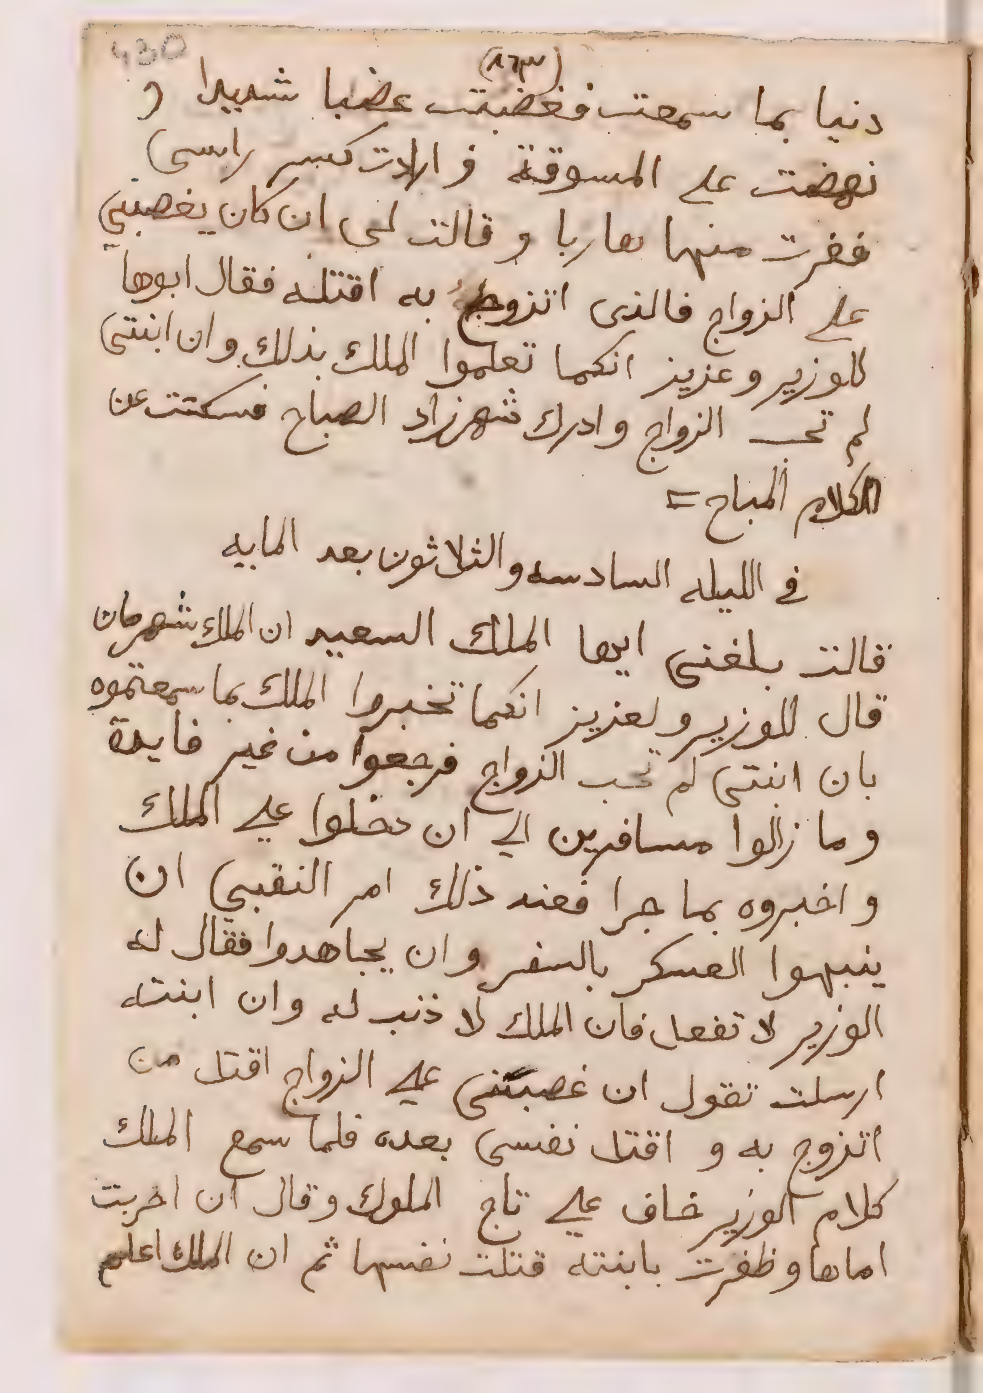 430
(٨٦٣)
دنيا بما سمعت فغضبت غضبا شديدا و
نهضت علي المسوقة و ارادت كسر راسى
ففرت منها هاربا و قالت لى ان كان يغصبني
علي الزواج فالذى اتزوج به اقتله فقال ابوها
للوزير و عزيز انكما تعلموا الملك بذلك وان ابنتى
لم تحب الزواج و ادرك شهرزاد الصباح فسكتت عن
الكلام المباح =
في الليله السادسه والثلاثون بعد المايه
قالت بلغنى ايها الملك السعيد ان الملك شهرمان
قال للوزير ولعزيز انكما تخبروا الملك بما سمعتموه
بان ابنتى لم تحب الزواج فرجعوا من غير فايدة
و ما زالوا مسافرين الي ان دخلوا علي الملك
و اخبروه بما جرا فعند ذلك امر النقبي ان
ينبهوا العسكر بالسفر وان يجاهدوا فقال له
الوزير لا تفعل فان الملك لا ذنب له وان ابنته
ارسلت تقول ان غصبتنى علي الزواج اقتل من
اتزوج به و اقتل نفسى بعده فلما سمع الملك
كلام الوزير خاف علي تاج الملوك وقال ان احربت
اباها وظفرت بابنته قتلت نفسها ثم ان الملك اعلم